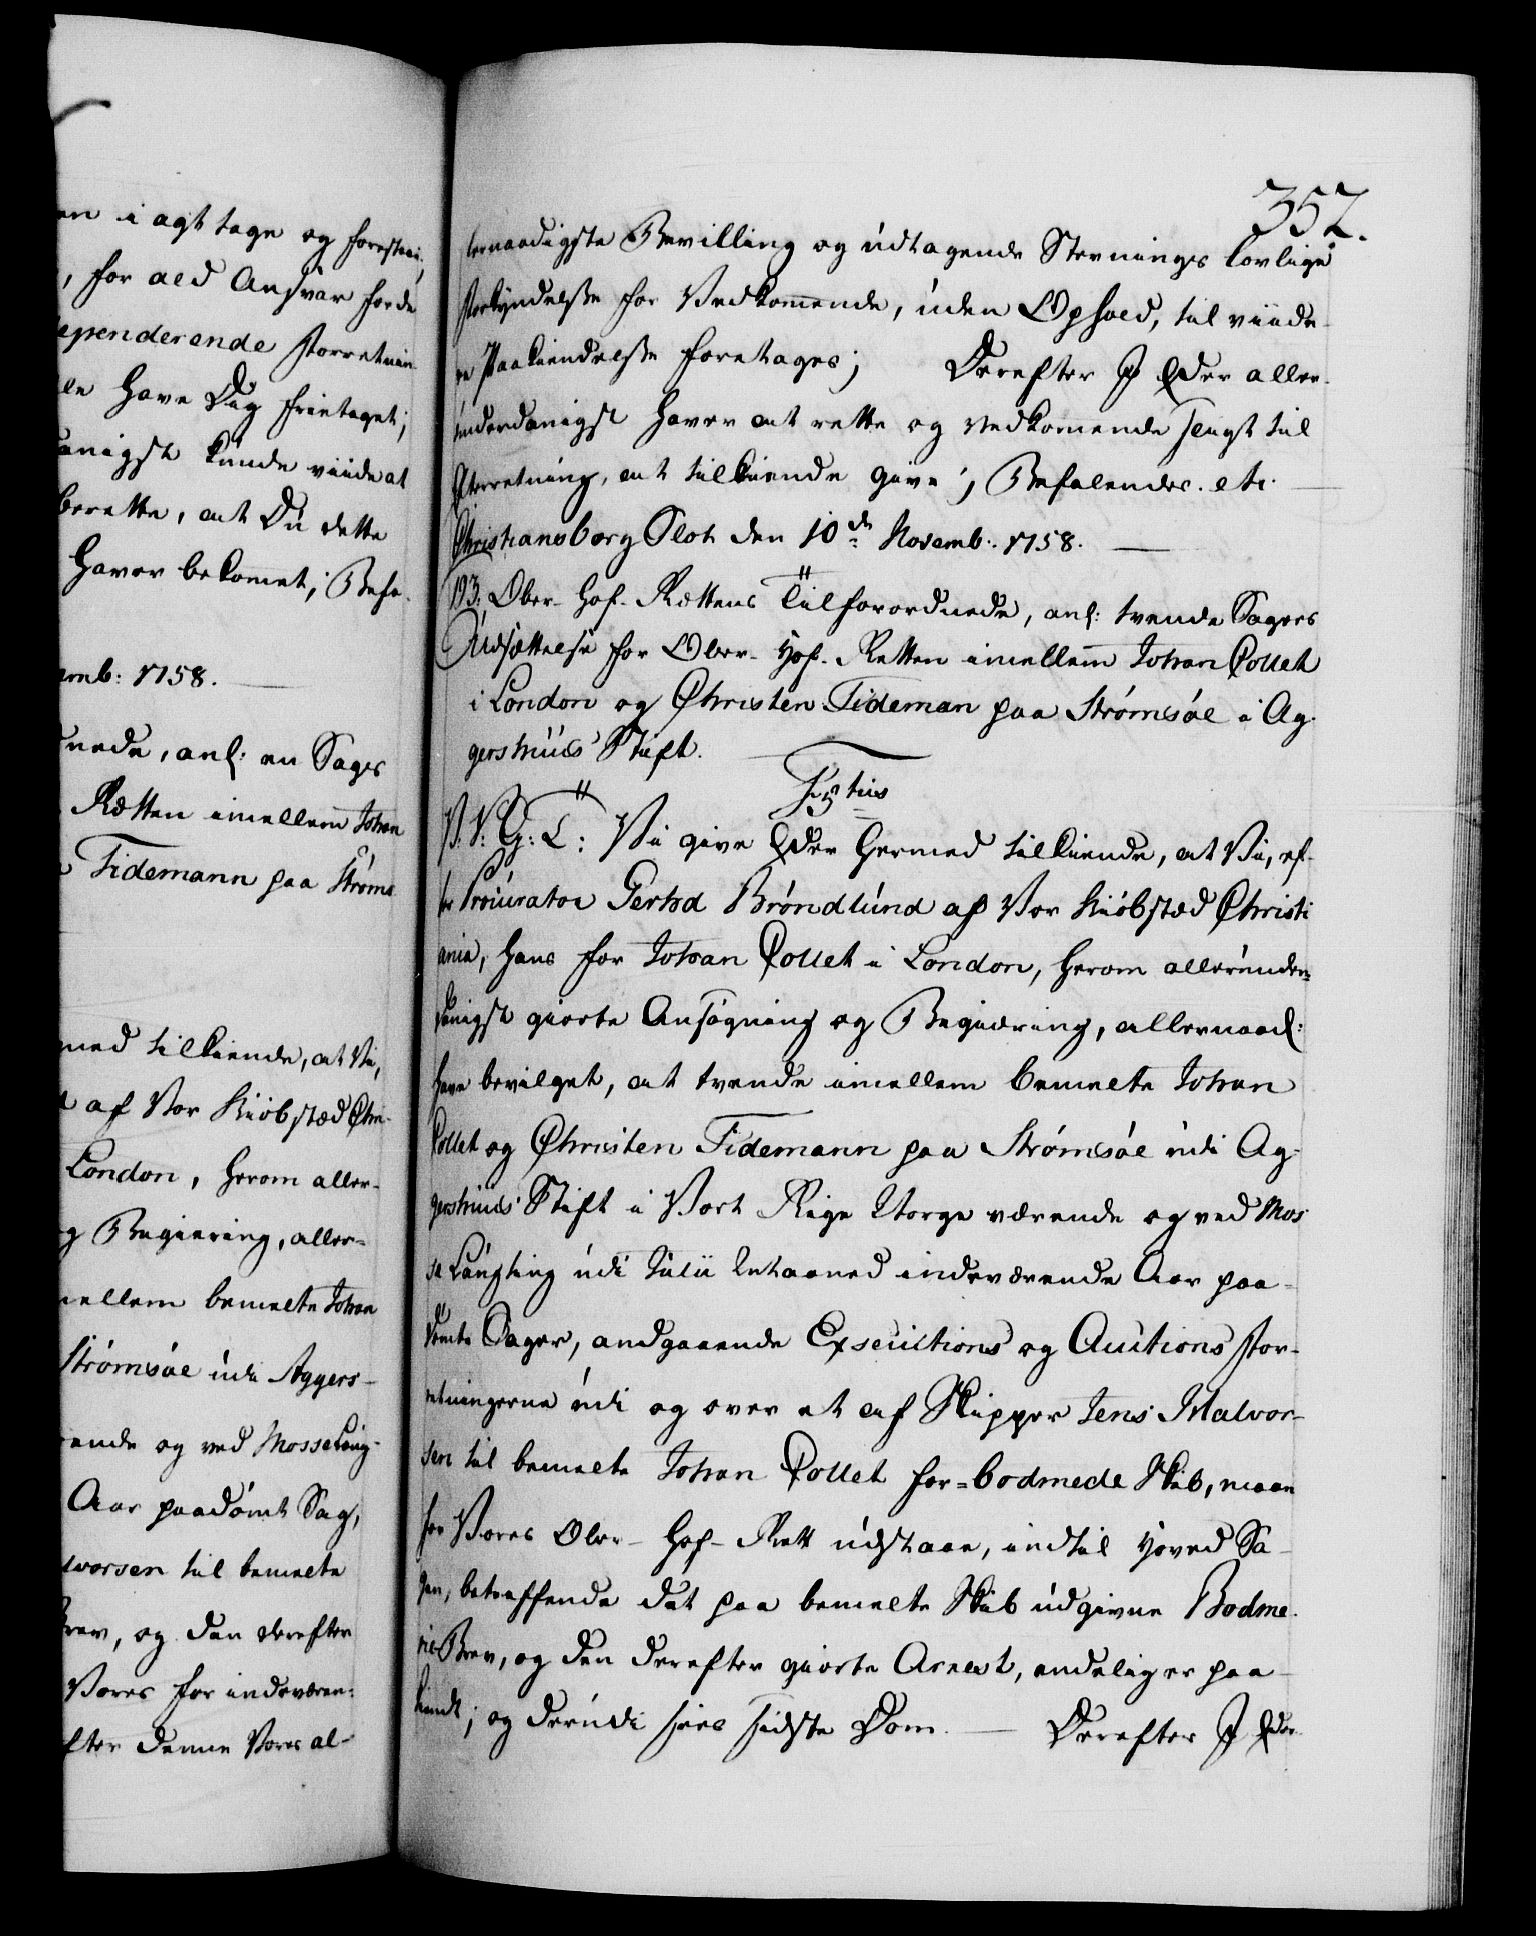 en i agt tage og forestaae,
, for ald Ansvar forde
dependerende Forretnin-
le have Dig frietaget;
danigst kunde viide at
berette, at Du dette
haver bekomet; Befa-
emb: 1758.
dnede, anl: en Sags
Rætten imellem Johan
Tidemann paa Strøms
med tilkiende, at Vi,
af Vor Kiøbstæd Chri-
London, herom aller-
og Begiering, aller-
imellem bemelte Johan
Strømsøe udi Aggers-
rende og ved Mosse Laug-
Aar paadømt Sag,
lvorsen til bemelte
Brev, og den derefter
Vores for indeværen-
efter denne Vores al-
352.
lernaadigste Bevilling og udtagende Stevnings lovlige
Forkyndelse for Vedkommende, uden Ophold, til viide-
re Paakiendelse foretages; Derefter I Eder aller-
underdanigst haver at rette og Vedkomende sligt til
Efterretning, at tilkiende give; Befalendes. etc.
Christiansborg Slot den 10de Novemb: 1758.
193. Ober- Hof- Rettens Tilforordnede, anl: tvende Sagers
Udsættelse for Ober- Hof- Retten imellem Johan Collet
i London og Christen Tideman paa Strømsøe i Ag-
gershuus Stift.
F: 5tus
V: V: G: T: Vi give Eder hermed tilkiende, at Vi, ef-
ter Procurator Gertod Brøndlund af Vor Kiøbstæd Christi
ania, hans for Johan Collet i London, herom allerunder-
danigst giorte Ansøgning og Begiæring, allernaad:
have bevilget, at tvende imellem bemelte Johan
Collet og Christen Tidemann paa Strømsøe udi Ag-
gershuus Stift i Vort Rige Norge værende og ved Mos
se Laugting udi Julii Maaned indeværende Aar paa-
dømte Sager, andgaaende Executions og Auctions For-
retningerne udi og over et af Skipper Jens Malvor-
sen til bemelte Johan Collet for-bodmede Skib, maae
for Vores Ober- Hof- Rett udstaae, indtil Hoved Sa-
gen, betreffende det paa bemelte Skib udgivne Bodme-
rie Brev, og den derefter giorte Arrest, endelig er paa-
kiendt; og derudi sees sidste Dom. Derefter I Eder